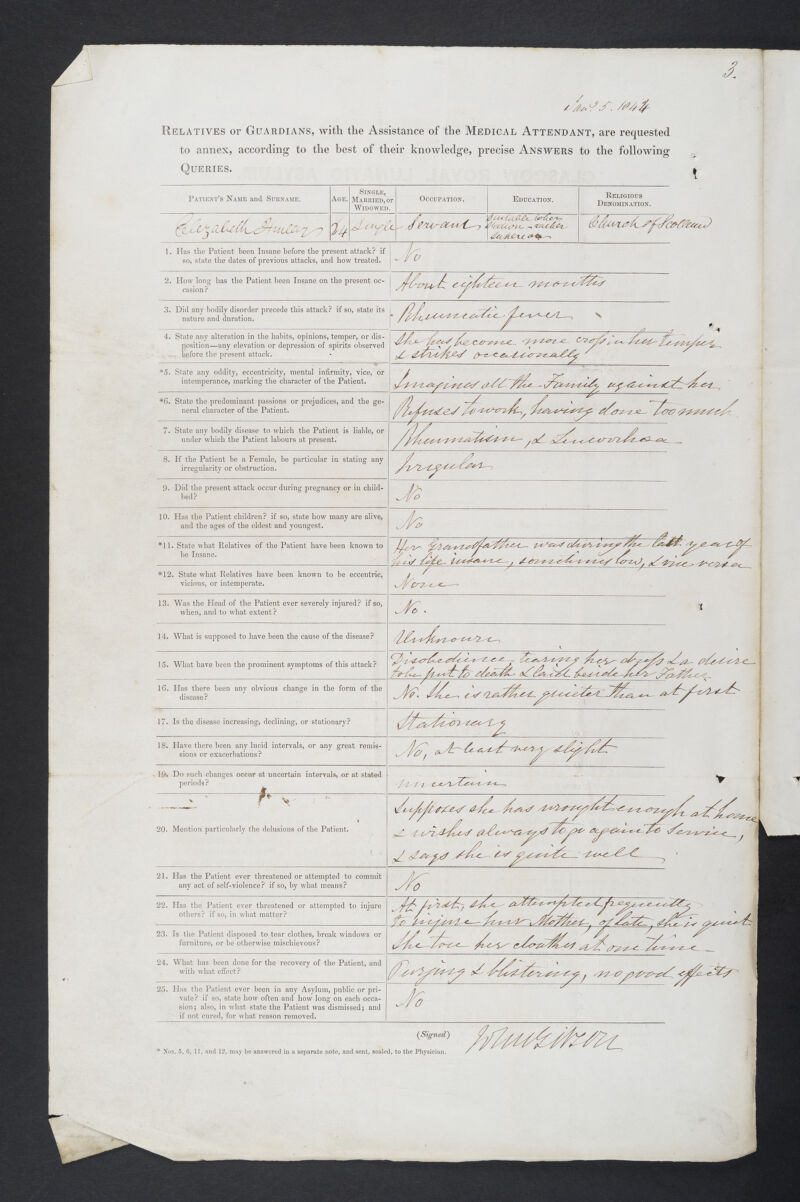 3.
5. 1844
RELATIVES or GUARDIANS, with the Assistance of the MEDICAL ATTENDANT, are requested
to annex, according to the best of their knowledge, precise ANSWERS to the following
QUERIES.
PATIENT'S NAME and SURNAME. AGE. SINGLE, MARRIED, or WIDOWED. OCCUPATION. EDUCATION. RELIGIOUS DENOMINATION.
Elizabeth 24 Single Servant Suitable to her Station rather Superior Church of Scotland
1. Has the Patient been Insane before the present attack? if
so, state the dates of previous attacks, and how treated.
No
2. How long has the Patient been Insane on the present oc-
casion?
About eighteen months
3. Did any bodily disorder precede this attack? if so, state its
nature and duration.
Rheumatic fever
4. State any alteration in the habits, opinions, temper, or dis-
position—any elevation or depression of spirits observed
before the present attack.
She has become more cross in her temper
& strikes occasionally
*5. State any oddity, eccentricity, mental infirmity, vice, or
intemperance, marking the character of the Patient.
Imagines all the Family against her
*6. State the predominant passions or prejudices, and the ge-
neral character of the Patient.
Refuses to work, having done too much
7. State any bodily disease to which the Patient is liable, or
under which the Patient labours at present.
Rheumatism, & Leucorrhoea
8. If the Patient be a Female, be particular in stating any
irregularity or obstruction.
Irregular
9. Did the present attack occur during pregnancy or in child-
bed?
No
10. Has the Patient children? if so, state how many are alive,
and the ages of the eldest and youngest.
No
*11. State what Relatives of the Patient have been known to
be Insane.
Her Grandfather was during the last year of
his life insane, sometimes low, & vice versa
*12. State what Relatives have been known to be eccentric,
vicious, or intemperate.
None
13. Was the Head of the Patient ever severely injured? if so,
when, and to what extent?
No.
14. What is supposed to have been the cause of the disease?
Unknown
15. What have been the prominent symptoms of this attack?
Disobedience, tearing her dress & a desire
to be put to death & laid beside her Father
16. Has there been any obvious change in the form of the
disease?
No. She is rather quieter than at first
17. Is the disease increasing, declining, or stationary?
Stationary
18. Have there been any lucid intervals, or any great remis-
sions or exacerbations?
No, at least very slight
19. Do such changes occur at uncertain intervals, or at stated
periods?
uncertain
20. Mention particularly the delusions of the Patient.
Supposes she has wrought enough at home
& wishes always to go again to Service,
& says she is quite well
21. Has the Patient ever threatened or attempted to commit
any act of self-violence? if so, by what means?
No
22. Has the Patient ever threatened or attempted to injure
others? if so, in what matter?
At first, she attempted frequently
to injure her Mother, of late, she is quiet
23. Is the Patient disposed to tear clothes, break windows or
furniture, or be otherwise mischievous?
She tore her cloathes at one time
24. What has been done for the recovery of the Patient, and
with what effect?
Purging & blistering, no good effects
25. Has the Patient ever been in any Asylum, public or pri-
vate? if so, state how often and how long on each occa-
sion; also, in what state the Patient was dismissed; and
if not cured, for what reason removed.
No
(Signed) John Gibson
* Nos. 5, 6, 11, and 12, may be answered in a separate note, and sent, sealed, to the Physician.